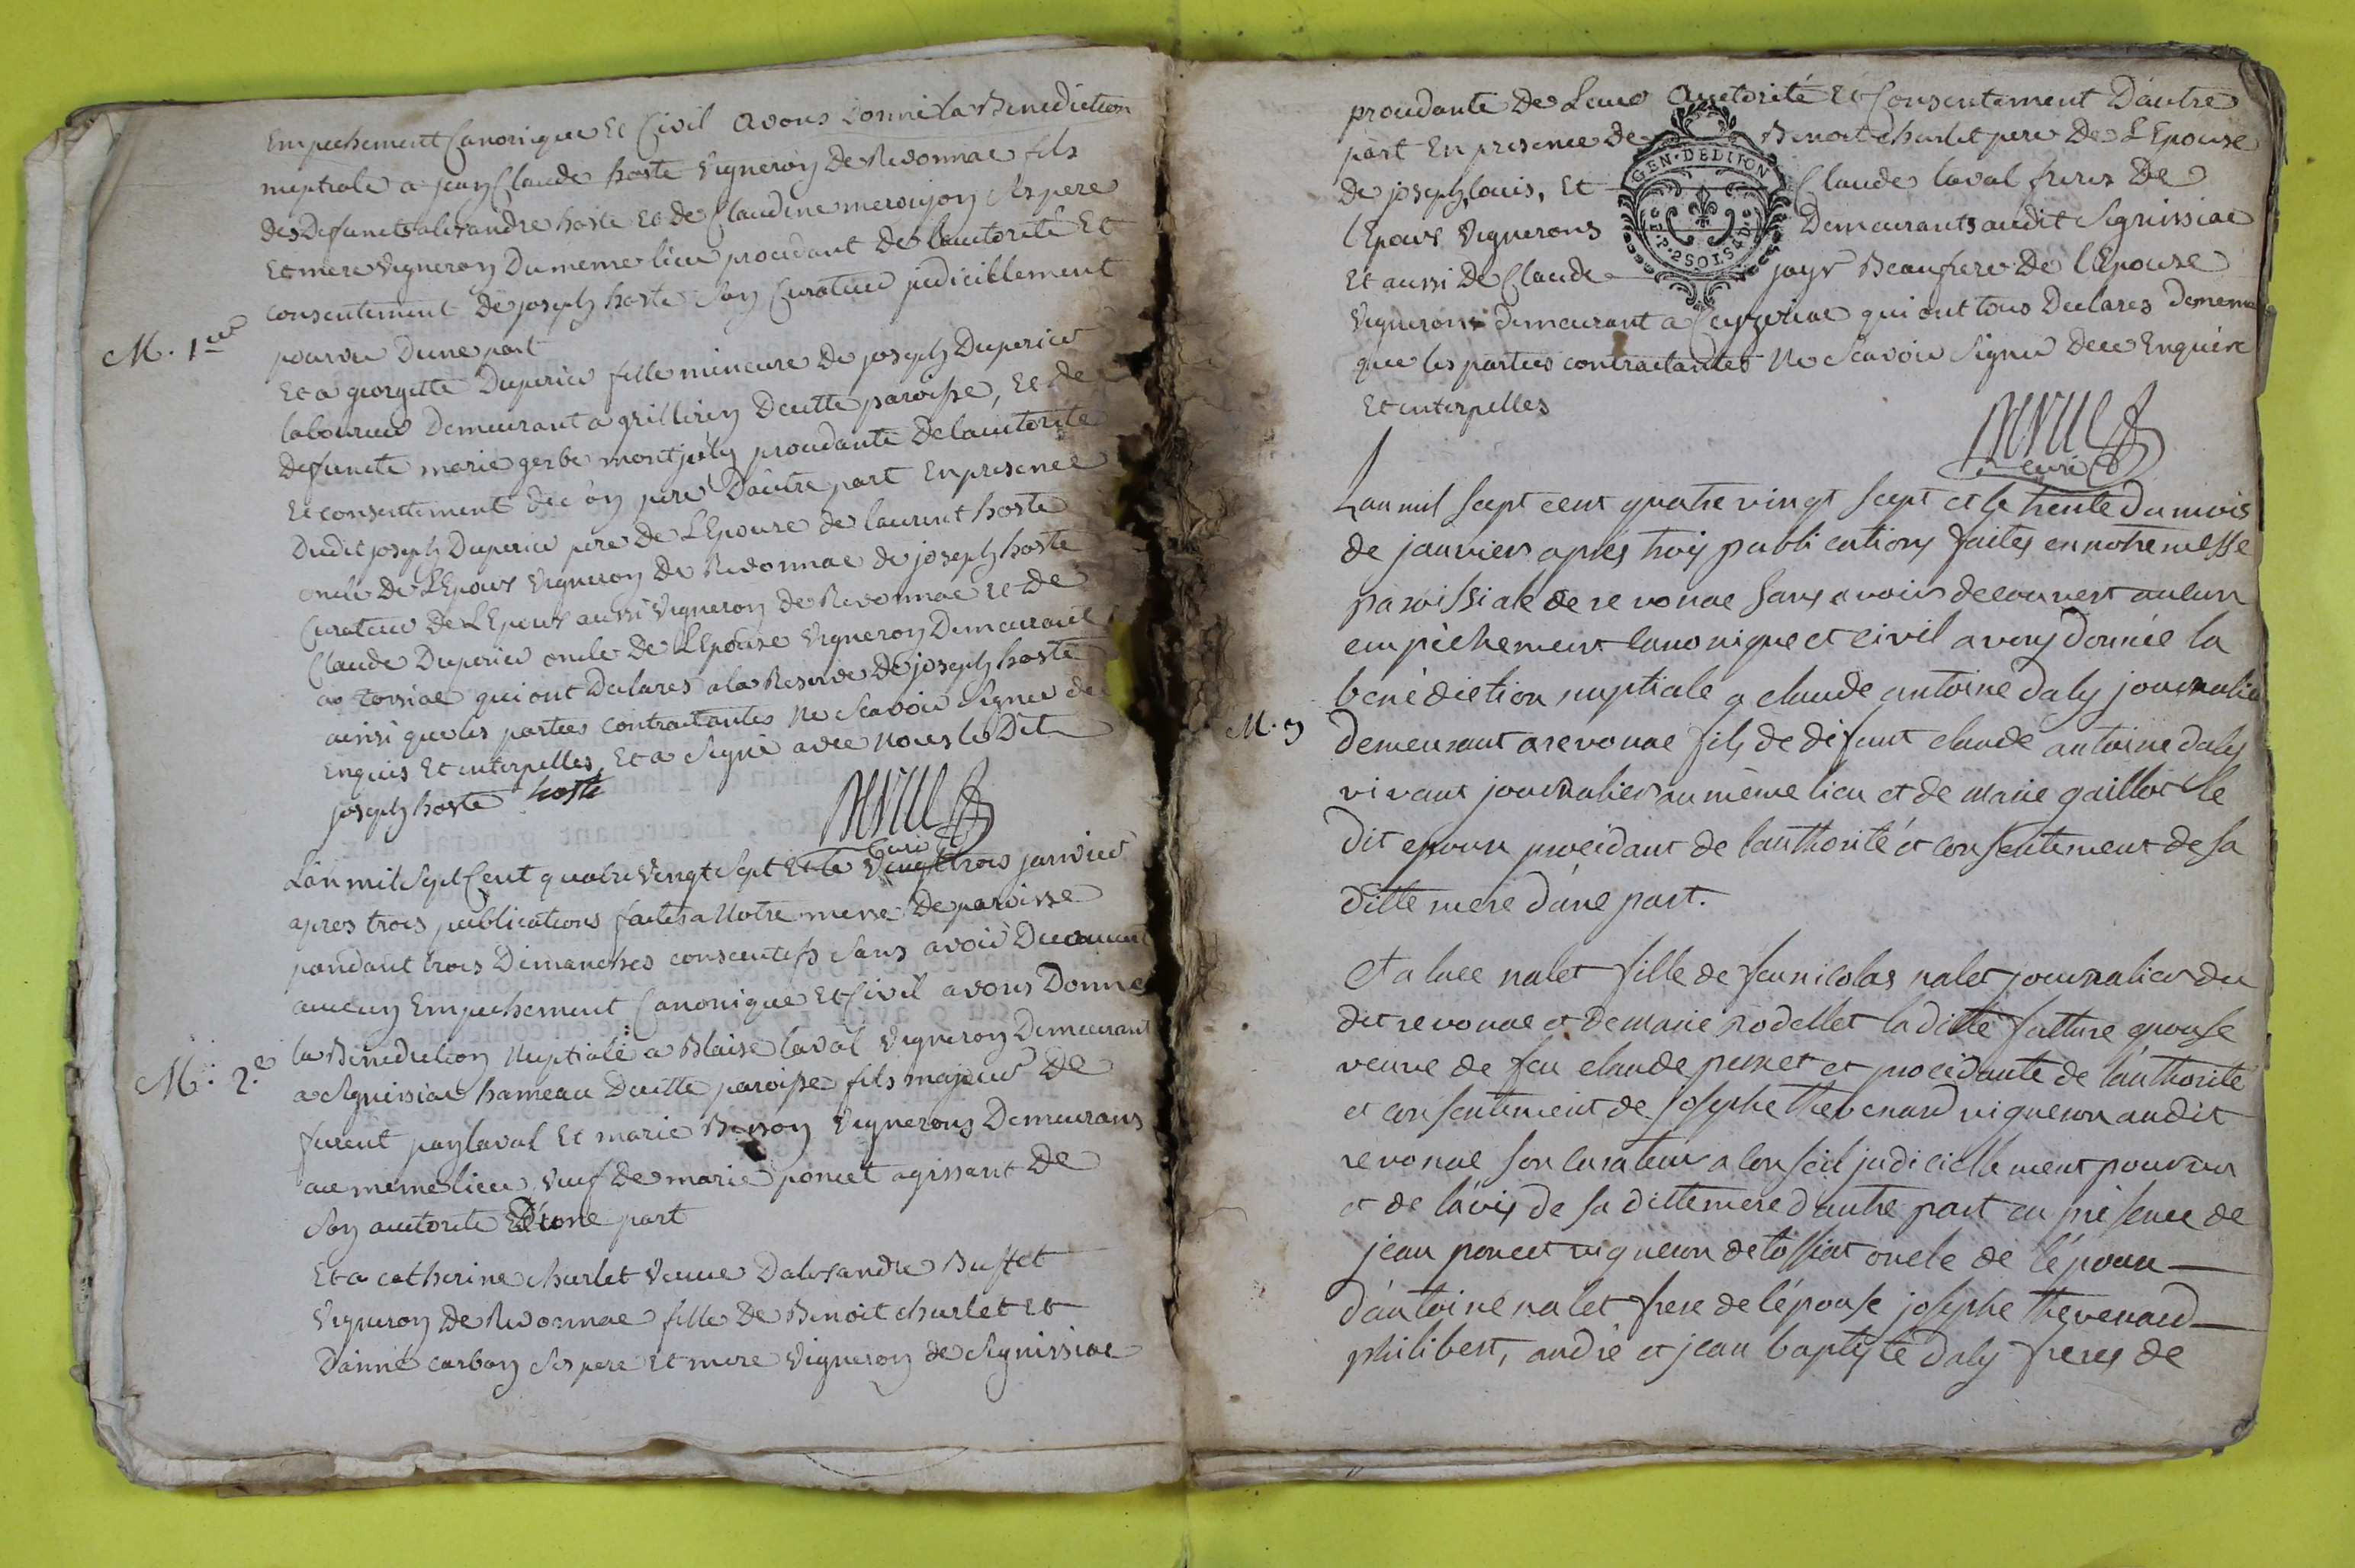 Empechement Canonique Et Civil avons donné la Benediction
nuptiale a jean Claude hoste Vigneron De Revonnac fils
des Defuncts alexandre hoste Et de Claudine meroujon Ses pere
Et mere Vigneron Du meme lieu procedant De lautorité Et
consentement de joseph hoste Son Curateur judiciellement
M. 1ere
pourvu Dune part
Et a georgette Duperier fille mineure de joseph Duperier
laboureur Demeurant a grillerin Deutte paroisse, Et de
defuncte marie gerbe montjoly procedante De lautorité
Et consentement de son pere Dautre part En presence
Dudit joseph Duperier pere De LEpouse de laurent hoste
oncle De LEpoux Vigneron De Revonnac de joseph hoste
Curateur De LEpoux aussi Vigneron de Revonnac Et de
Claude Duperier oncle De LEpouse Vigneron Demeurant
a Torsiac qui ont Declares a la Reserve De joseph hoste
ainsi que les parties contractantes Ne Scavoir Signer de
Enquis Et interpelles, Et a Signé avec Nous le Dit
joseph hoste hoste
curé
Lan mil Sept Cent quatre Vingt Sept Et le Vingt trois janvier
apres trois publications faites a Notre messe De paroisse
pandant trois Dimanches consecutifs Sans avoir Decouvert
aucun Empechement Canonique Et Civil avons Donne
la Benediction Nuptiale a Blaise laval Vigneron Demeurant
M. 2.e
a Signissiac hameau Deutte paroisse fils majeur De
furent jean laval Et marie Buson Vignerons Demeurans
au meme lieu, Veuf De marie poncet agissant De
Son autorité D'une part
Et a catherine charlet Veuve Dalexandre Buffet
Vigneron De Revonnac fille De Benoit charlet Et
Danne carbon Ses pere Et mere Vigneron de Signissiac
procedante De Leur autorité Et Consentement Dautre
part En presence De Benoit charlet pere De LEpouse
de joseph, louis, Et Claude laval freres De
lEpoux Vignerons Demeurants audit Signissiac
Et aussi De Claude jayr Beaufrere De lEpouse
Vigneron demeurant a Ceyzeriac qui ont tous Declares De meme
que les parties contractantes Ne Scavoir Signer dece Enquire
Et interpelles
GEN. DE DIJON
curé
Lan mil sept cent quatre vingt sept et le trente du mois
de janvier après trois publications faites en notre messe
paroissiale de revonac sans avoir decouvert aucun
empêchement canonique et civil avons donnée la
benédiction nuptiale a claude antoine daly journalier
M. 3
demeurant a revonac fils de défunt claude antoine daly
vivant journalier au même lieu et de marie gaillot le
dit epoux procédant de l'authorité et consentement de sa
ditte mere d'une part.
Et a luce nalet fille de feu nicolas nalet journalier du
dit revonac et de marie rodellet la ditte future epouse
veuve de feu claude perret et procédante de l'authorité
et consentement de josephe thevenard vigneron audit
revonac son curateur a conseil judiciellement pourvu
et de l'avis de sa ditte mere d'autre part en présence de
jean poncet vigneron de tossiat oncle de l'époux
d'antoine nalet frere de l'épouse josephe thevenard
philibert, andré et jean baptiste daly freres de